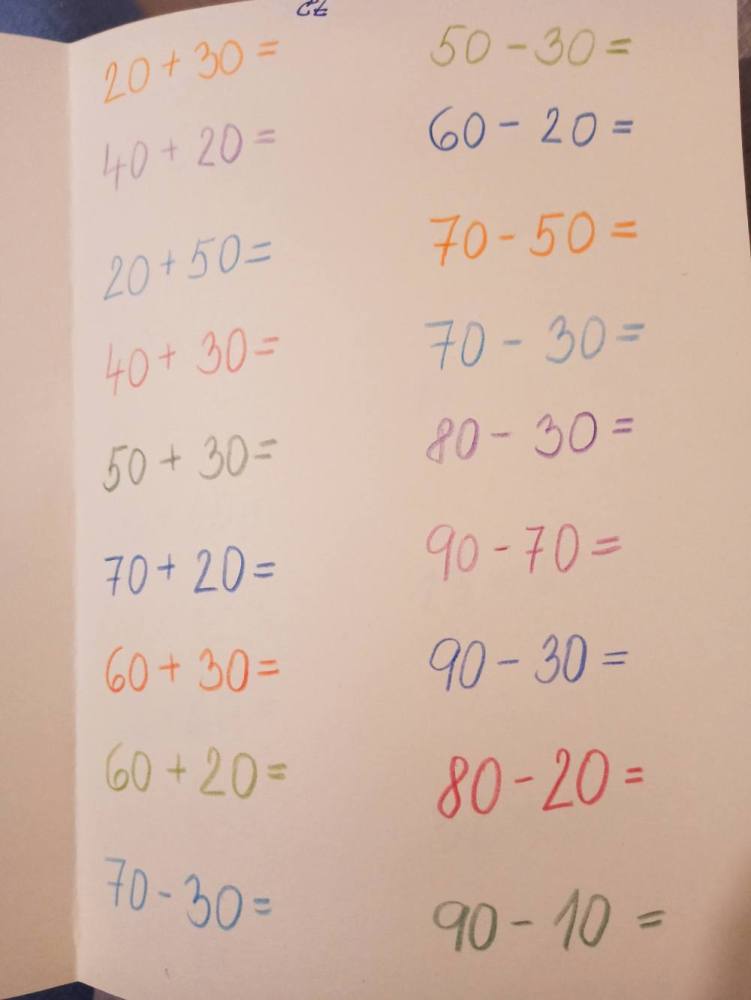 20 + 30 =
40 + 20 =
20 + 50 =
40 + 30 =
50 + 30 =
70 + 20 =
60 + 30 =
60 + 20 =
70 - 30 =
50 - 30 =
60 - 20 =
70 - 50 =
70 - 30 =
80 - 30 =
90 - 70 =
90 - 30 =
80 - 20 =
90 - 10 =